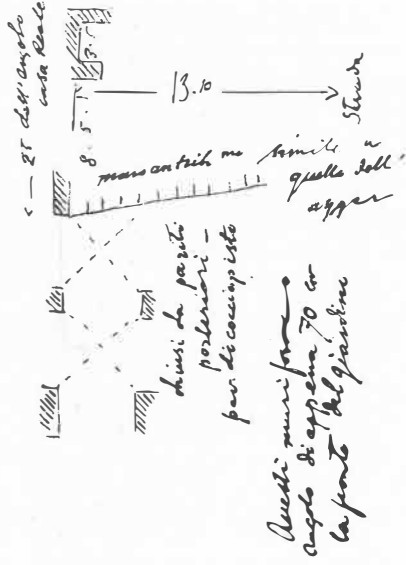 ← 25 dell'angolo
casa Reale
3.5
8.5.1
13.10
Strada
muro antich mo simile a
quello dell
agger
chiusi da pariti
posteriori –
pav. di cocciopisto
Questi muri formano
angolo di appena 70 con
la fronte del giardino